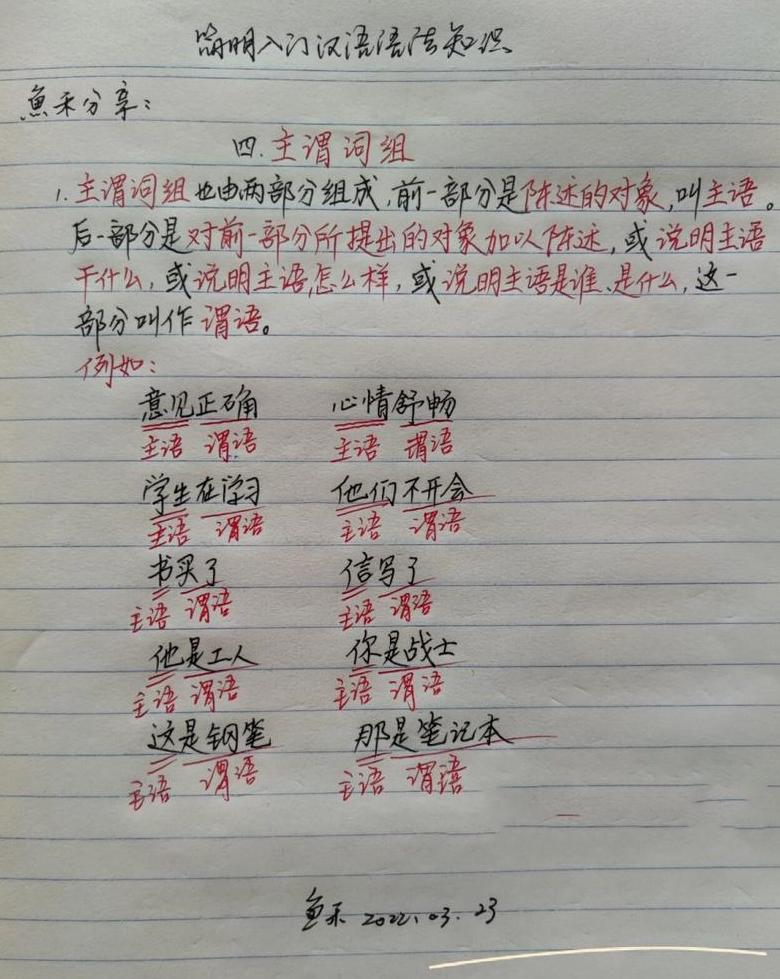 简明入门汉语语法知识
魚禾分享：
四.主谓词组
1.主谓词组也由两部分组成,前一部分是陈述的对象,叫主语。
后一部分是对前一部分所提出的对象加以陈述,或说明主语
干什么,或说明主语怎么样,或说明主语是谁、是什么,这一
部分叫作谓语。
例如：
意见正确 心情舒畅
主语 谓语 主语 谓语
学生在学习 他们不开会
主语 谓语 主语 谓语
书买了 信写了
主语 谓语 主语 谓语
他是工人 你是战士
主语 谓语 主语 谓语
这是钢笔 那是笔记本
主语 谓语 主语 谓语
魚禾 2022.03.23